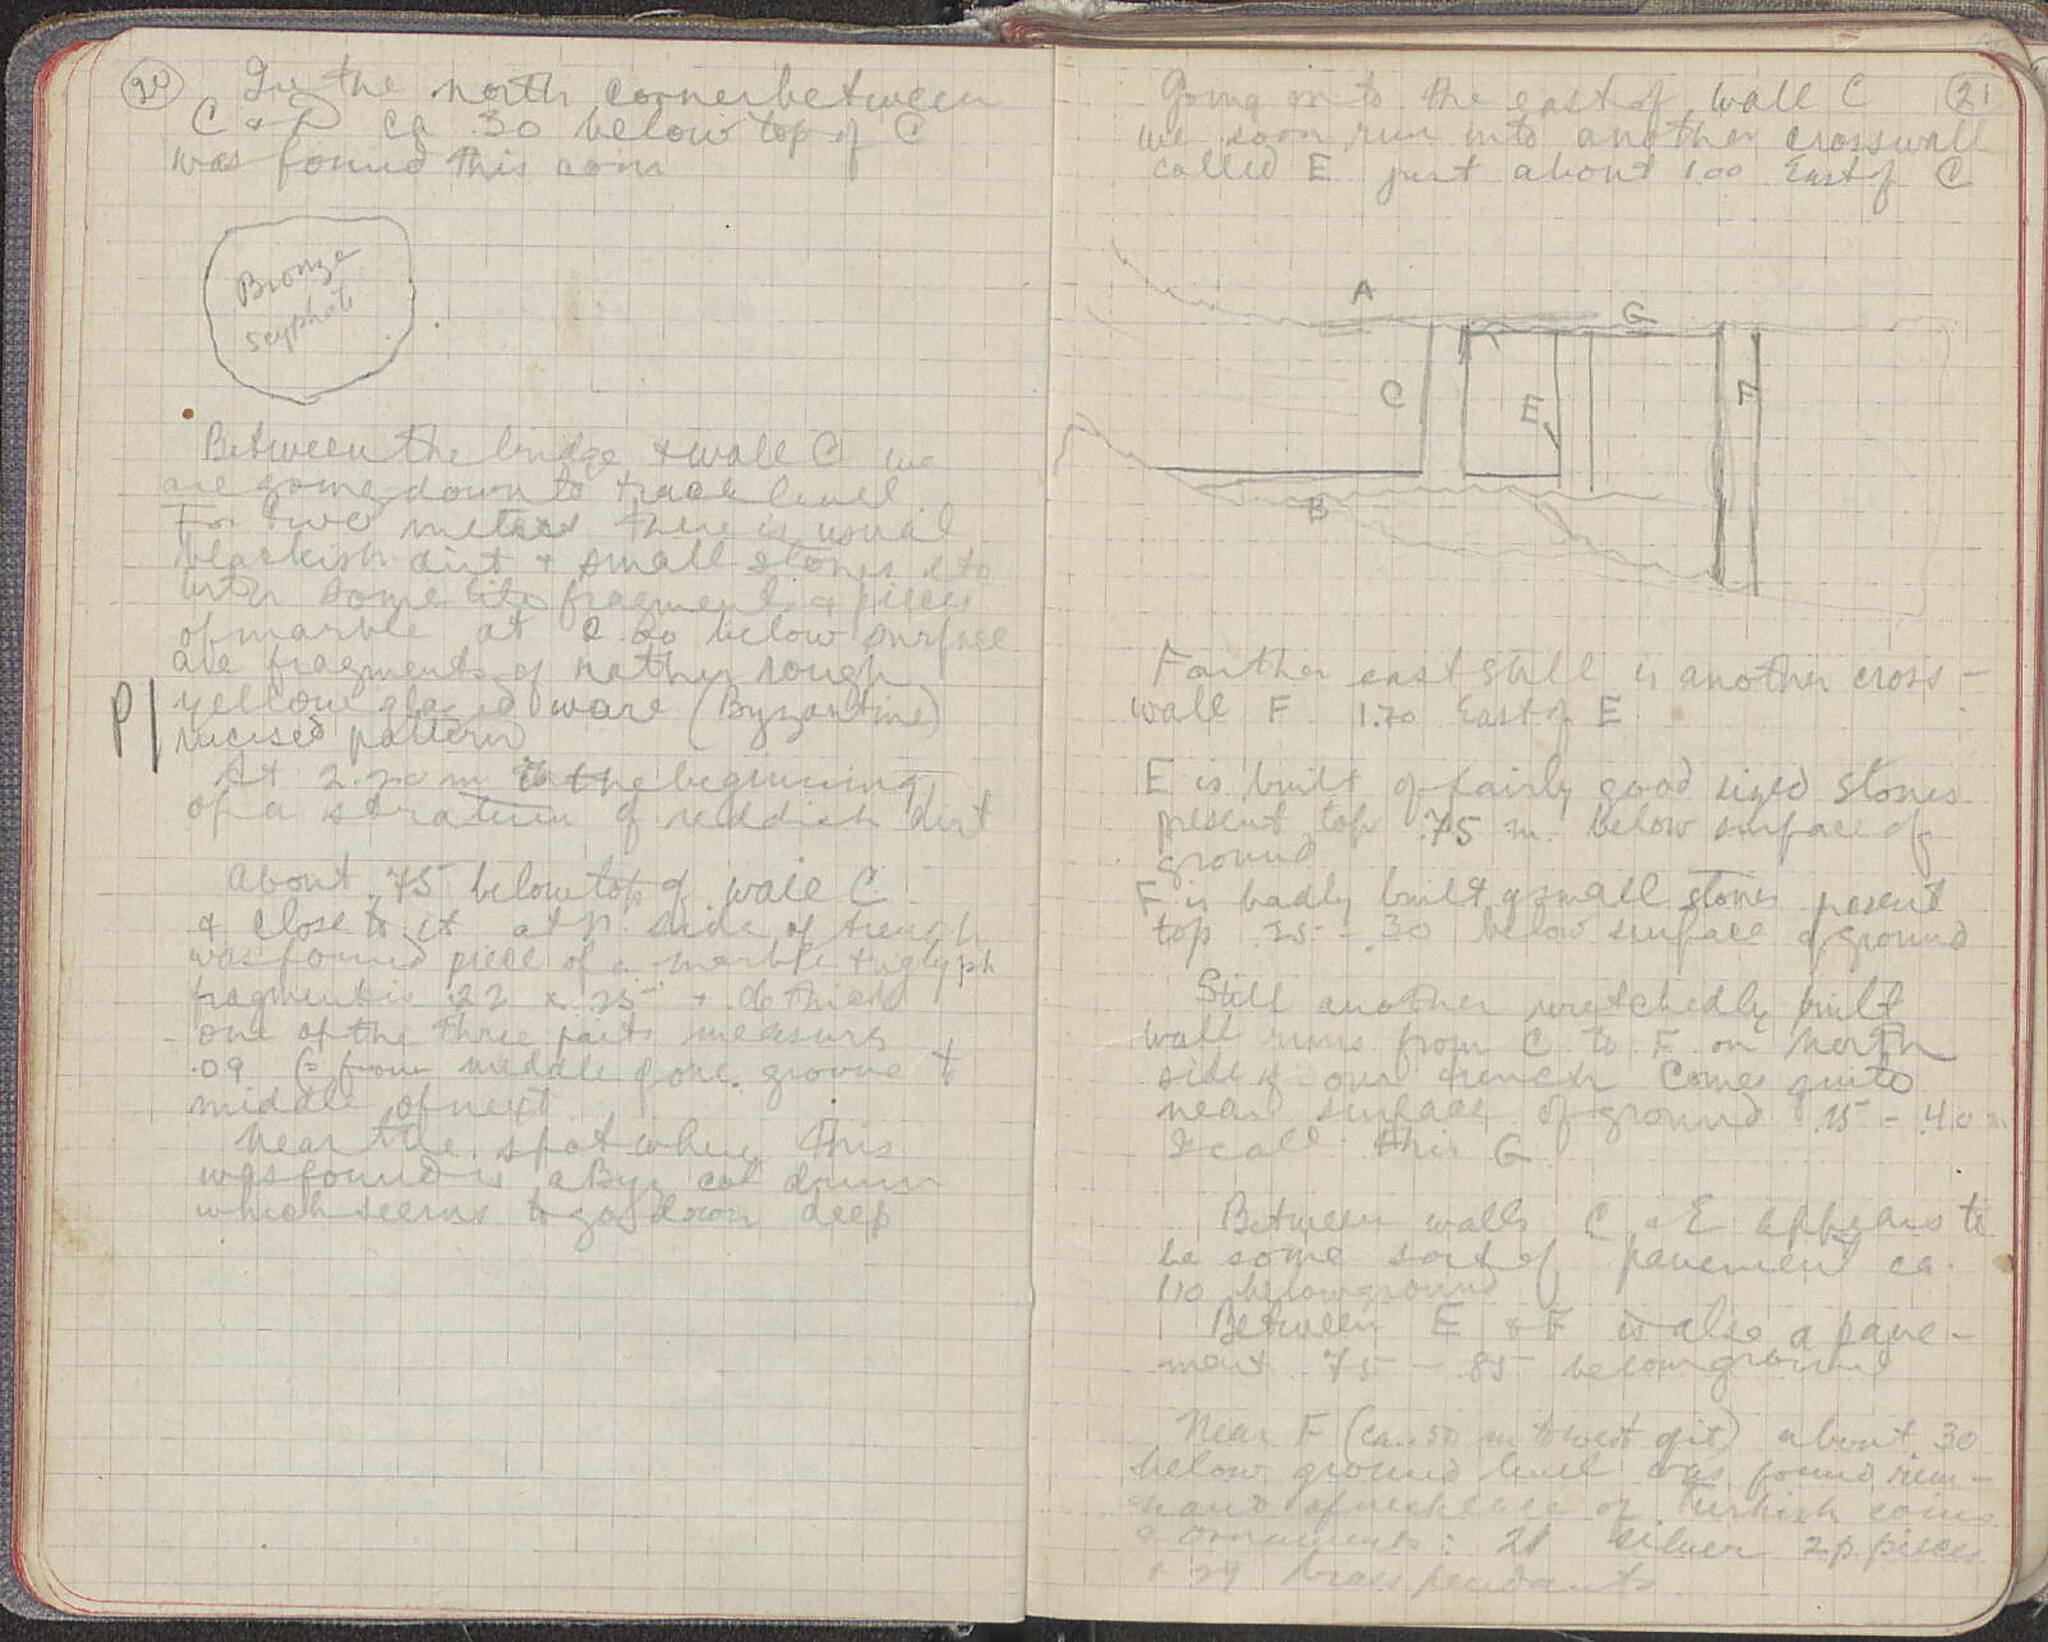 20
In the north corner between
C & D ca .30 below top of C
was found this coin
Bronze
scyphate
Between the bridge & wall C we
are going down to track level
For two metres there is usual
blackish dirt & small stones etc
with some tile fragments & pieces
of marble at 2.00 below surface
are fragments of rather rough
P| yellow glazed ware (Byzantine)
incised pattern
At 2.20 m is the beginning
of a stratum of reddish dirt
About .75 below top of wall C
& close to it at N. side of trench
was found piece of a marble triglyph
fragment is .22 x .25 + .06 thick
one of the three parts measures
.09 (= from middle of one groove to
middle of next
Near the spot where this
was found is a Byz col drum
which seems to go down deep
21
Going on to the east of wall C
we soon run into another crosswall
called E just about 1.00 East of C
A
G
C
E
F
B
Farther east still is another cross-
wall F 1.70 East of E
E is built of fairly good sized stones
present top .75 m. below surface of
ground
F is badly built of small stones present
top .25 - .30 below surface of ground
Still another wretchedly built
wall runs from C to F on North
side of our trench Comes quite
near surface of ground .15 - .40 m
I call this G
Between walls C & E appears to
be some sort of pavement ca.
1.10 below ground
Between E & F is also a pave-
ment .75 - .85 below ground
Near F (ca. .50 m to west of it) about .30
below ground level was found
necklace of Turkish coins
& ornaments: 21 silver 2p pieces
& 29 brass pendants